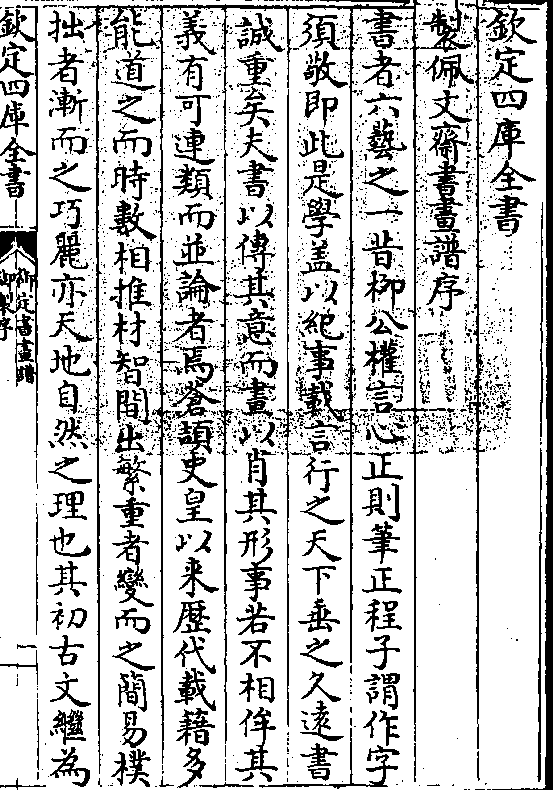 欽定四庫全書
製佩文齋書畫譜序
書者六藝之一昔栁公權言心正則筆正程子謂作字
須敬即此是學盖以紀事載言行之天下垂之久逺書
誠重矣夫書以傳其意而畫以肖其形事若不相侔其
義有可連類而並論者焉蒼頡史皇以来歴代載籍多
能道之而時數相推材智間出繁重者變而之簡易樸
拙者漸而之巧麗亦天地自然之理也其初古文繼為
欽定四庫全書
御定書畫譜
御製序
一